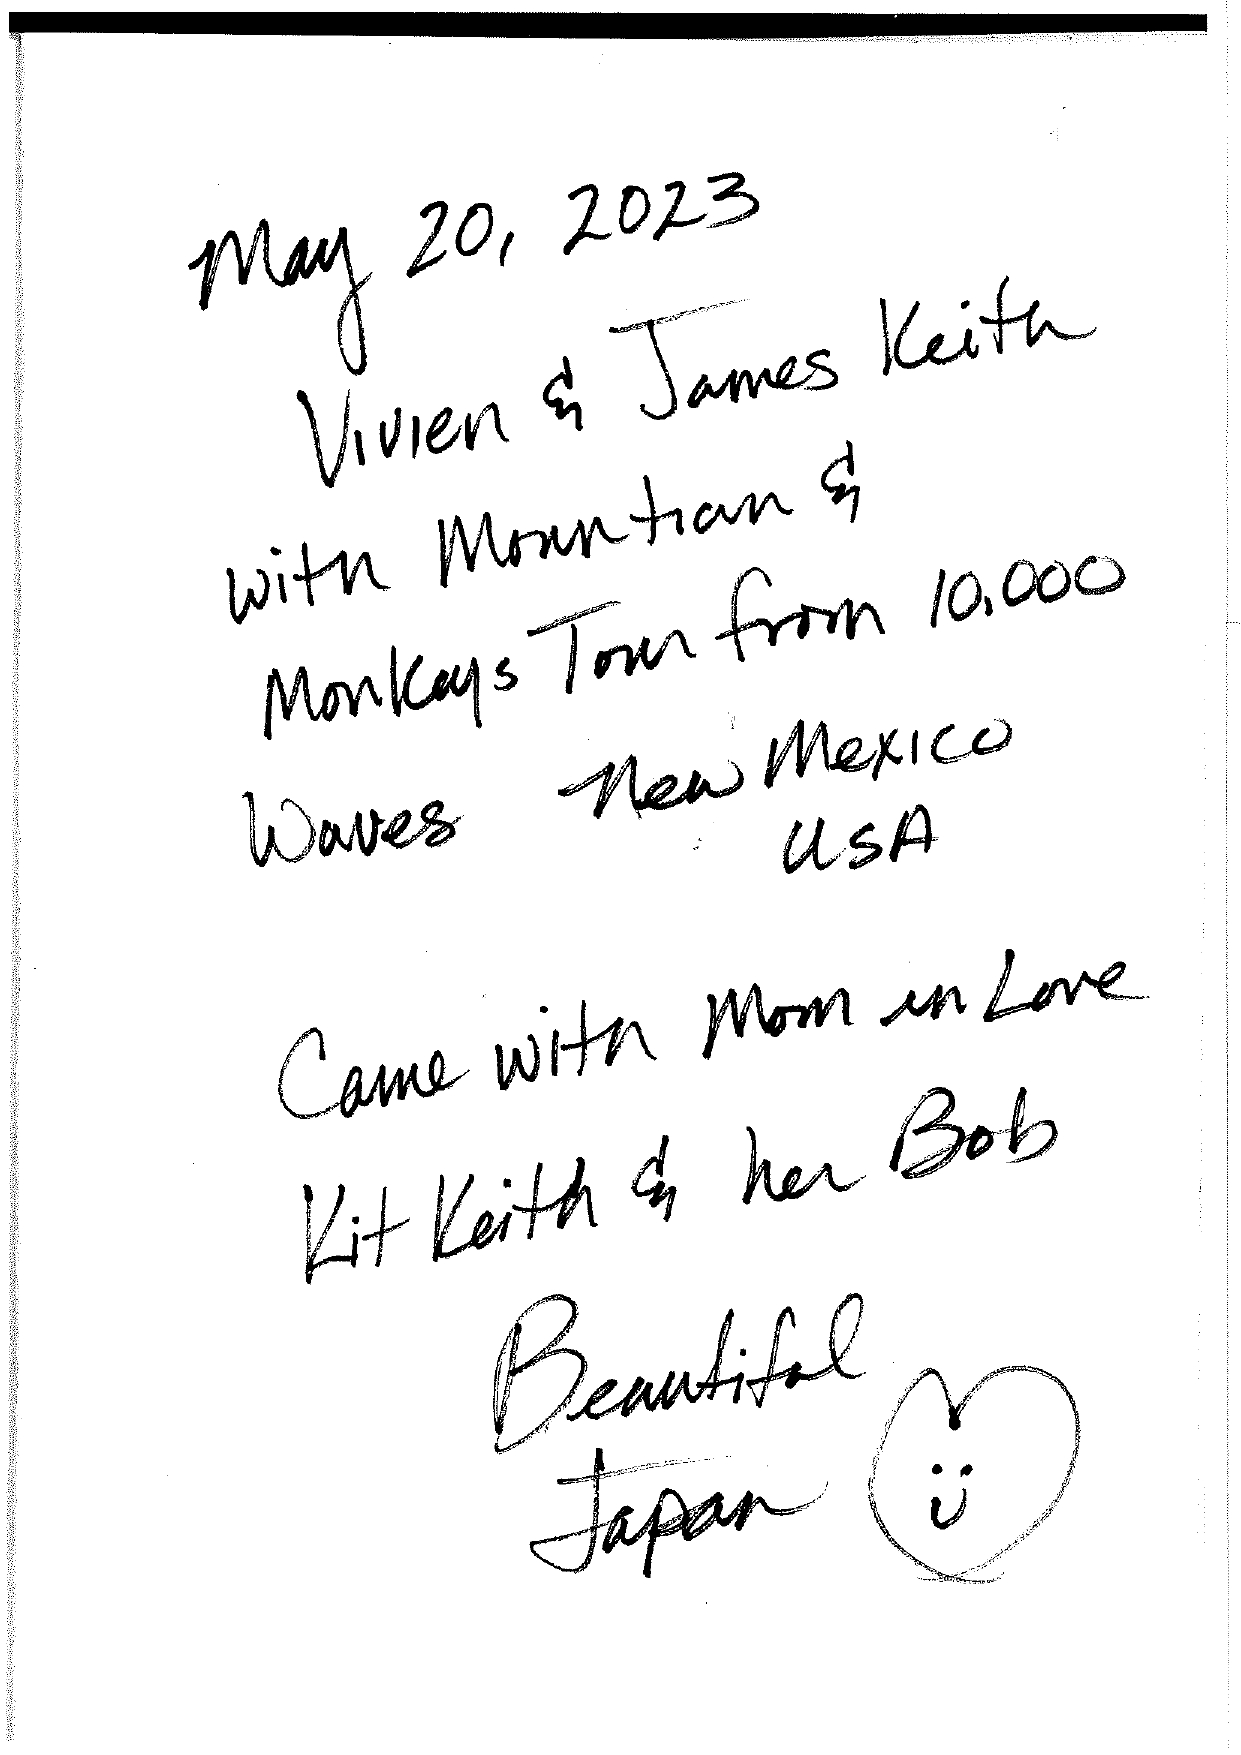 May 20, 2023
Vivien & James Keith
with Mountian &
Monkeys Tour from 10,000
Waves New Mexico
USA
Came with Mom in Love
Kit Keith & her Bob
Beautiful
Japan